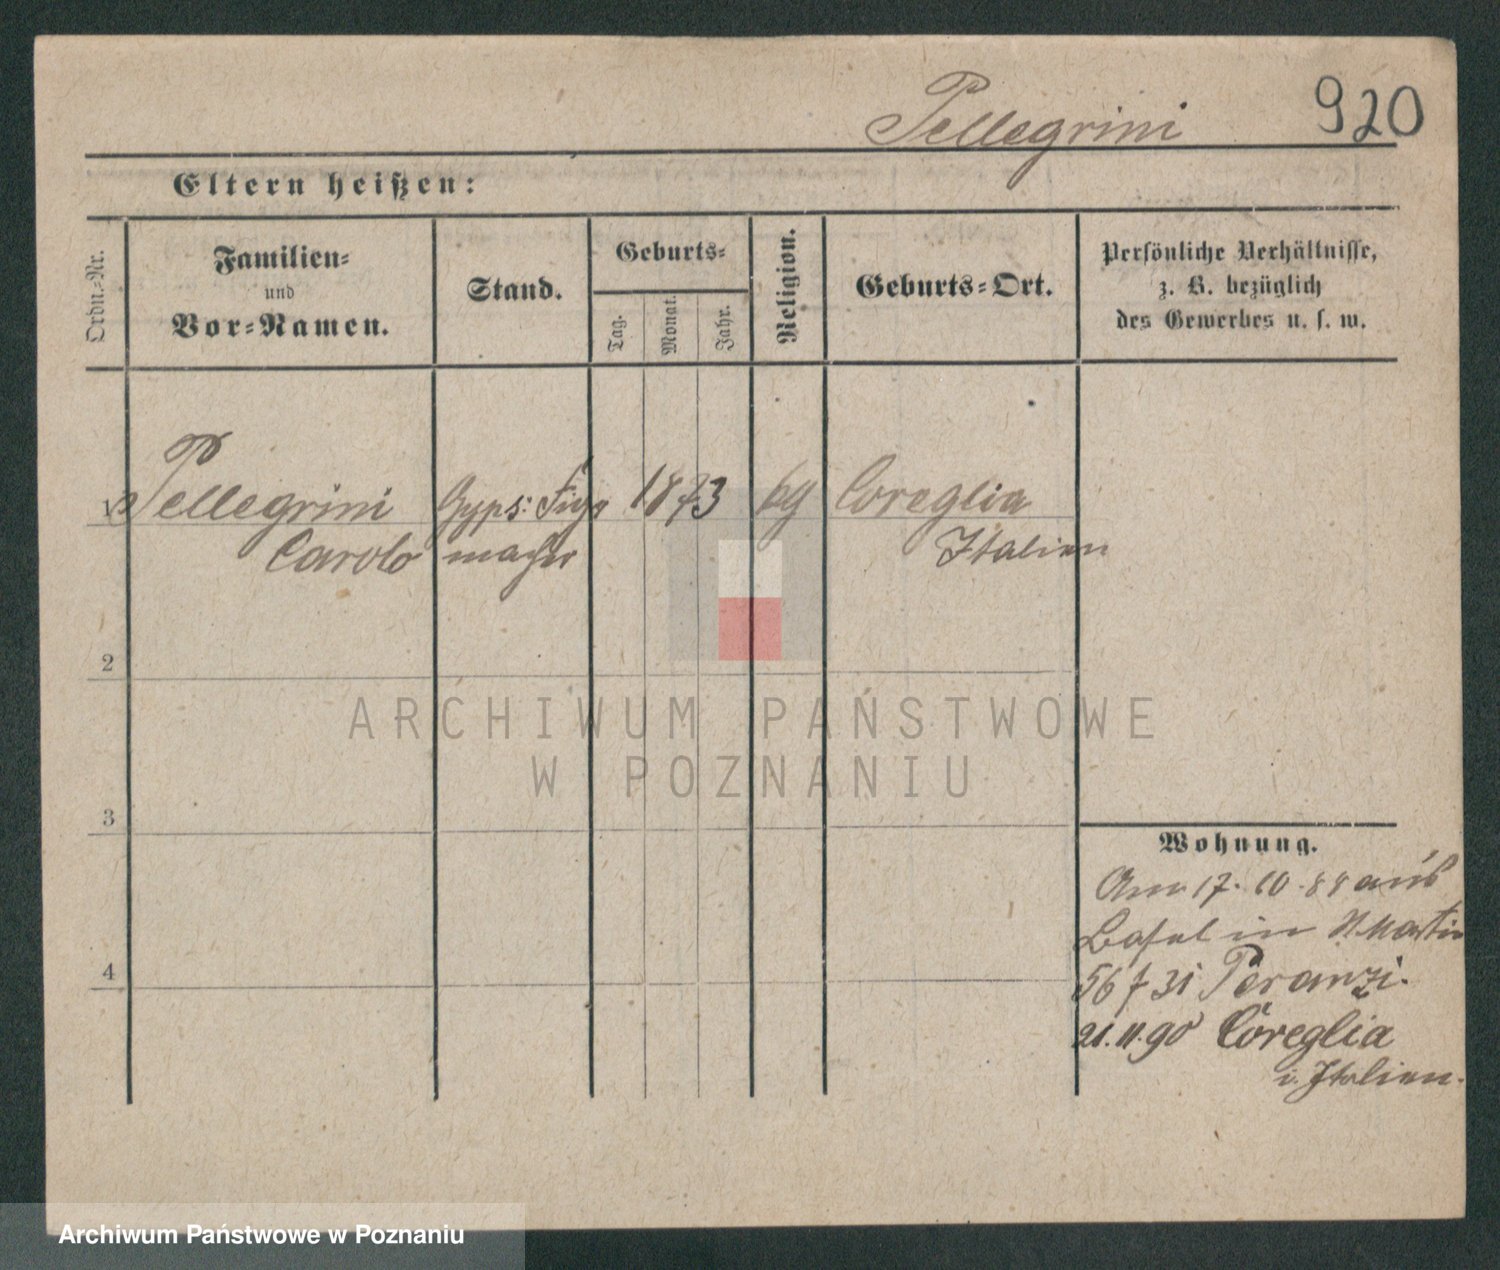 Pellegrini 920
Eltern heißen:
Ordn.-Nr.
Familien-
und
Vor-Namen.
Stand.
Geburts-
Tag.
Monat.
Jahr.
Religion.
Geburts-Ort.
Persönliche Verhältnisse,
z. B. bezüglich
des Gewerbes u. s. w.
1 Pellegrini Gyps: Fig 1873 kg Coreglia
Carolo macher Italien
2
3
4
Wohnung.
17. 10. 88 aus
Basel in St Martin
56 f 31 Peranzi.
21. 11. 90 Coreglia
i. Italien.
ARCHIWUM PAŃSTWOWE
W POZNANIU
Archiwum Państwowe w Poznaniu